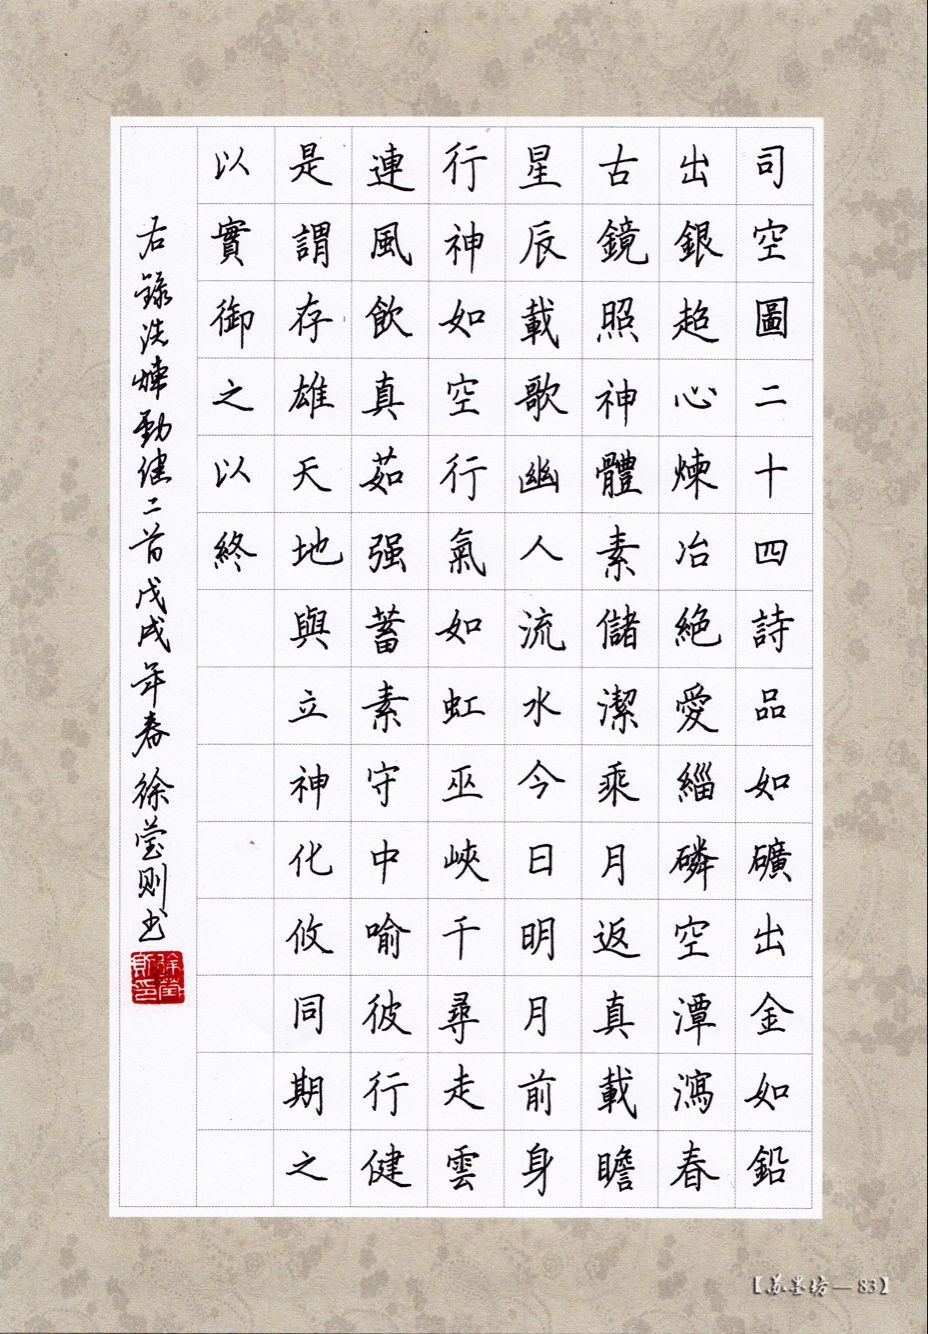 司空圖二十四詩品如礦出金如鉛
出銀超心煉冶絕愛緇磷空潭瀉春
古鏡照神體素儲潔乘月返真載瞻
星辰載歌幽人流水今日明月前身
行神如空行氣如虹巫峽千尋走雲
連風飲真茹强蓄素守中喻彼行健
是謂存雄天地與立神化攸同期之
以實御之以終
右錄洗煉勁健二首戊戌年春徐瑩則书
【苏墨坊—83】